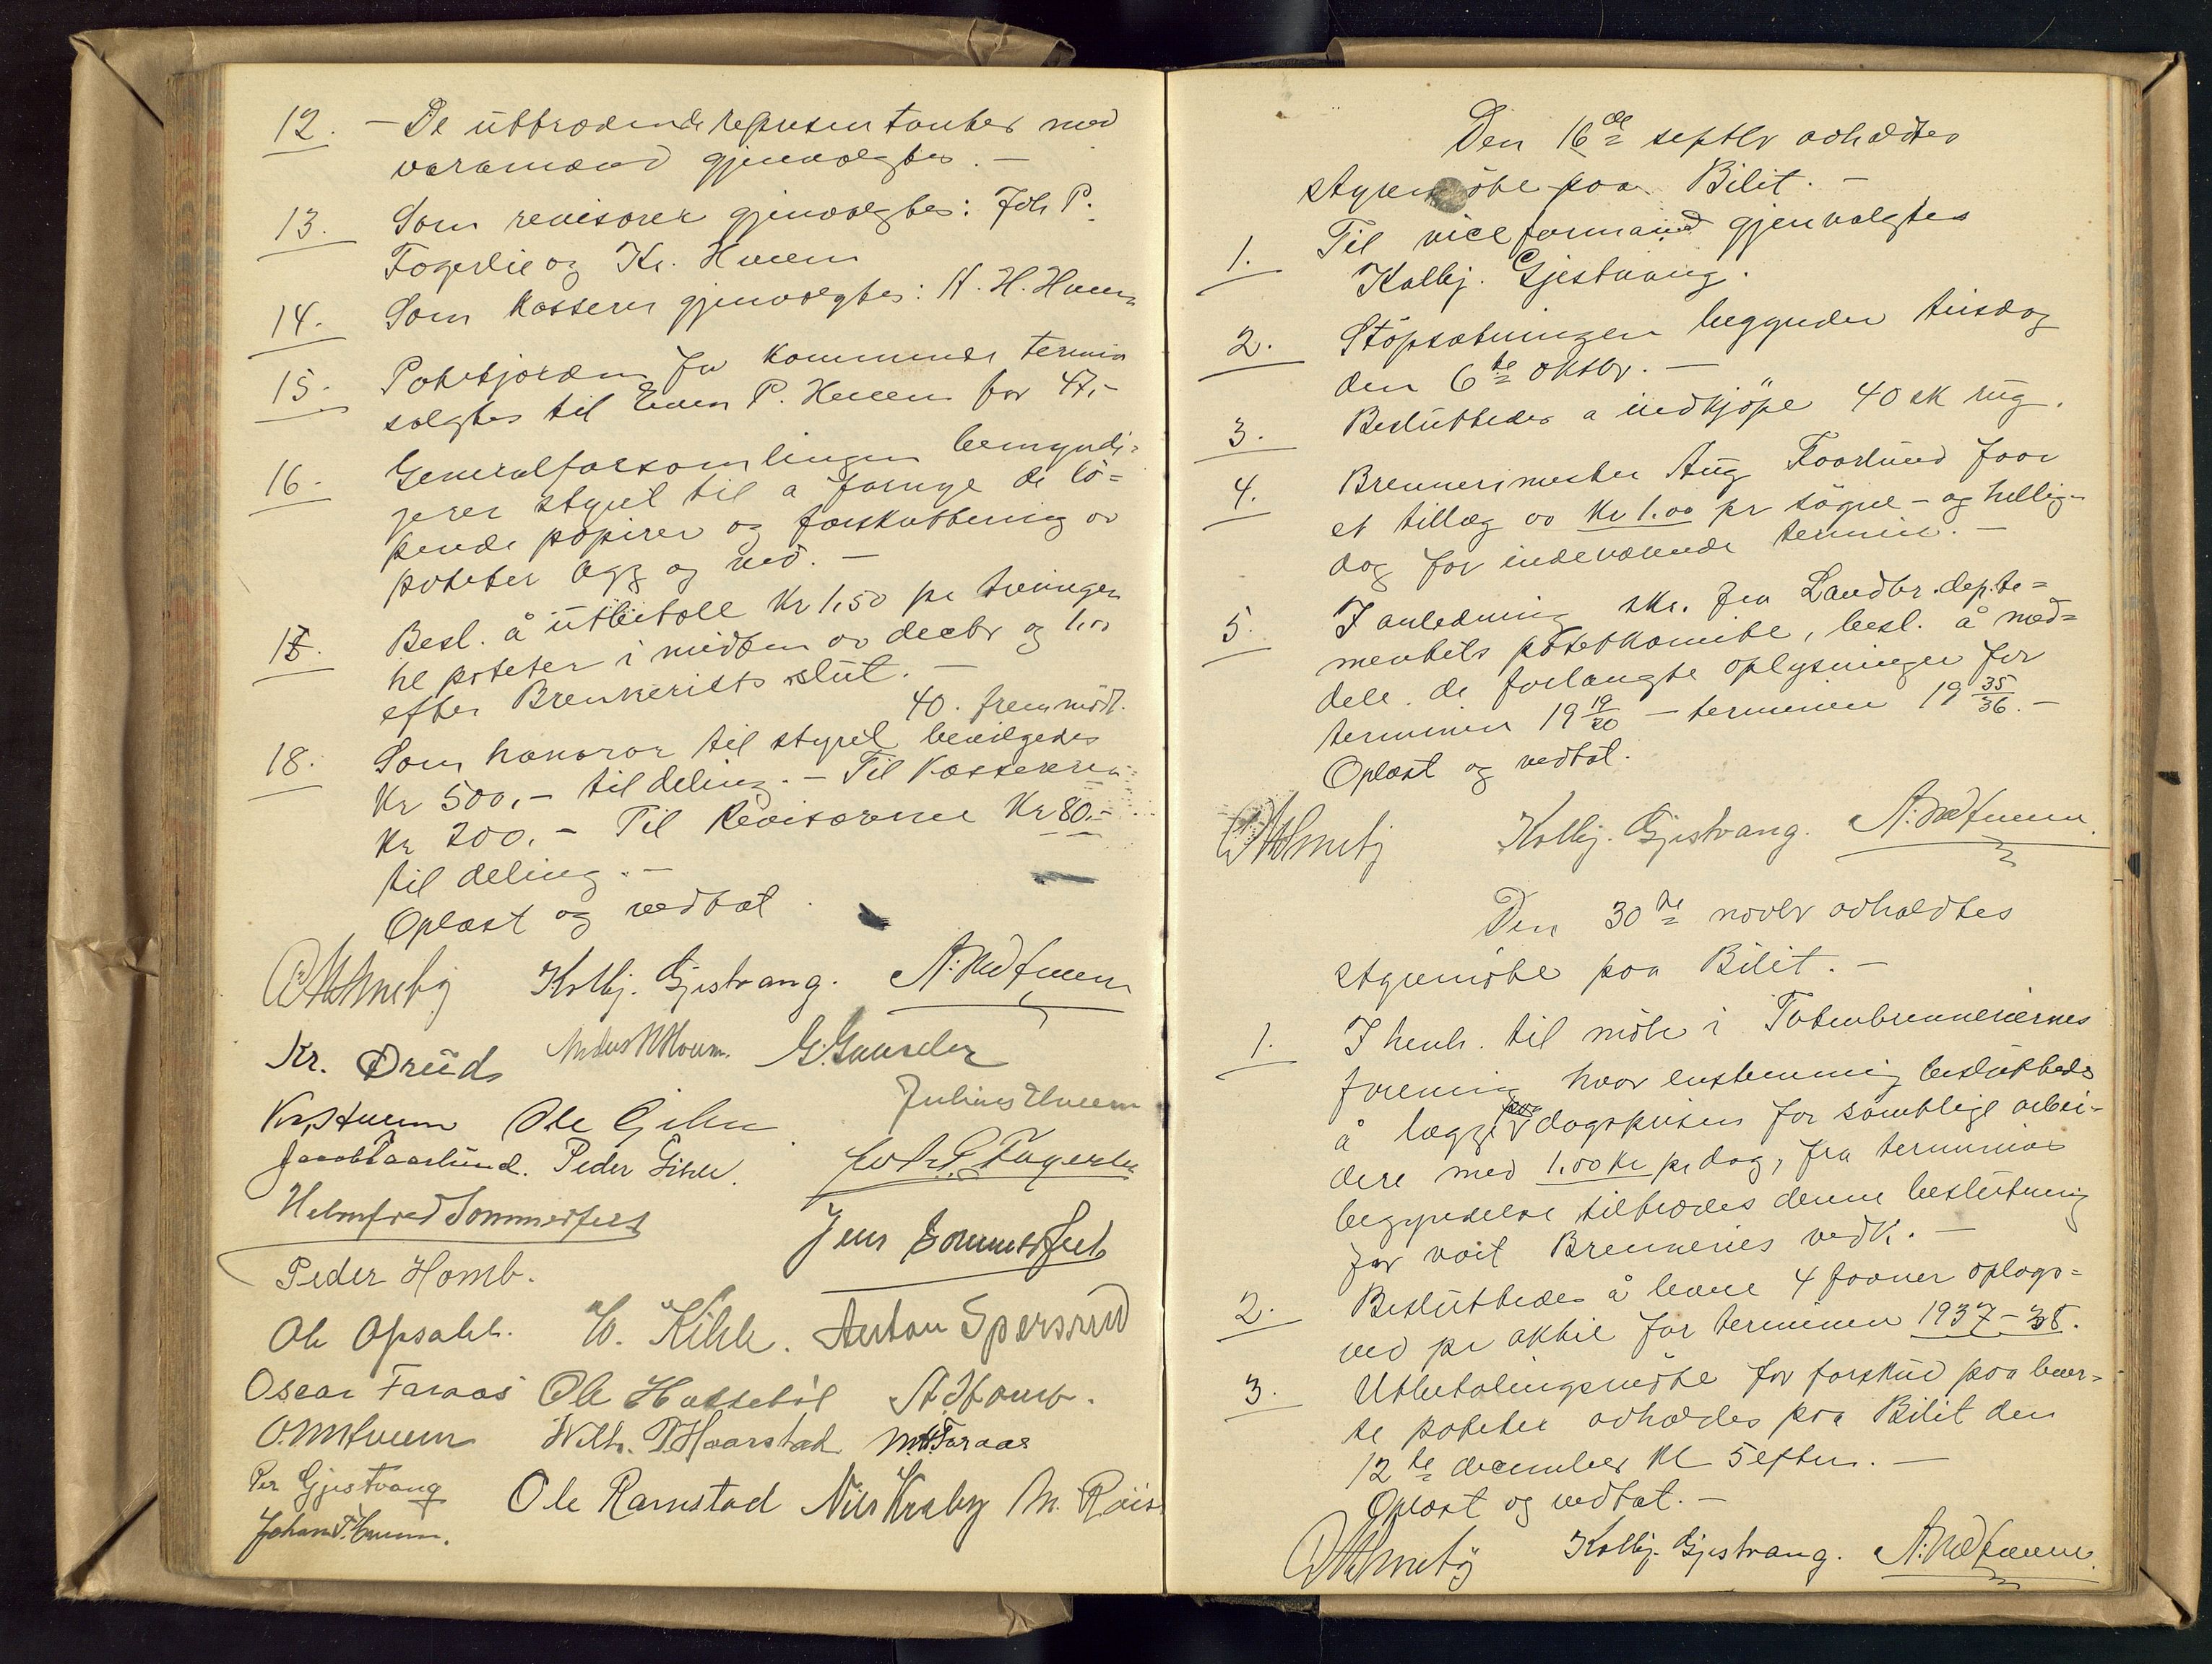 12. - De uttrædende representanter med
varamænd gjenvalgtes. -
13. Som revisorer gjenvalgtes: Joh P.
Fagerlie og Kr. Hveem
14. Som kasserer gjenvalgtes: A. H. Hveem
15. Potetjorden for kommende termin
solgtes til Even P. Hveem for 47,-
16. Generalforsamlingen bemyndi-
gerer styret til a fornye de lö-
pende papirer og forskuttering av
poteter bygg og ved. -
17. Besl. å utbetale Kr 1,50 pr tvingen
hl poteter i midten av decbr og 1.00
efter Brenneriets slut. -
40. fremmödt.
18. Som honorar til styret bevilgedes
Kr 500,- til deling. - Til Kassereren
Kr 200,- Til Revisorerne Kr 80,-
til deling. -
Oplæst og vedtat.
Kolbj. Gjestvang. A. M. Hveem
Kr. Drüds G. Gaarder
Julius Hveem
Kr. Hveem Ole Gihle
Jacob Paarlund. Peder Gihle. Joh. P. Fagerlie
Helmfred Sommerfelt
Jens Sommerfelt
Peder Homb.
Ole Opsahl. O. Kihle. Anton Spersrud
Oscar Faraas Ole Hasselöl A. Homb.
O. M. Hveem Wilh. P. Haarstad M. Faraas
Per Gjestvang
Ole Ramstad Nils Kraby M. Röis
Johan P. Hveem.
Den 16de septbr avholdtes
styremöte paa Bilit. -
1. Til viceformand gjenvalgtes
Kolbj. Gjestvang.
2. Stöpsætningen begynder tirsdag
den 6te oktbr. -
3. Besluttedes a indkjöpe 40 sk rug.
4. Brennerimester Aug Faarlund faar
et tillæg av Kr 1.00 pr sögne- og hellig-
dag for indeværende termin. -
5. I anledning skr. fra Landbr. depte-
mentets potetkomite, besl. å med-
dele de forlangte oplysninger for
terminen 19 19/20 - terminen 19 35/36. -
Oplæst og vedtat.
Kolbj. Gjestvang. A. M. Hveem
Den 30te novbr avholdtes
styremöte paa Bilit. -
1. I henh. til möte i Totenbrenneriernes
forening hvor enstemmig besluttedes
å lægge paa dagsprisen for samtlige arbei-
dere med 1.00 kr pr dag, fra terminens
begyndelse tiltrædes denne beslutning
for vort Brenneries vedk. -
2. Besluttedes å levere 4 favner oplags-
ved pr aktie for terminen 1937-38.
3. Utbetalingsmöte for forskud paa lever-
te poteter avholdes paa Bilit den
12te december kl 5 eftm. -
Oplæst og vedtat. -
Kolbj. Gjestvang. A. M. Hveem